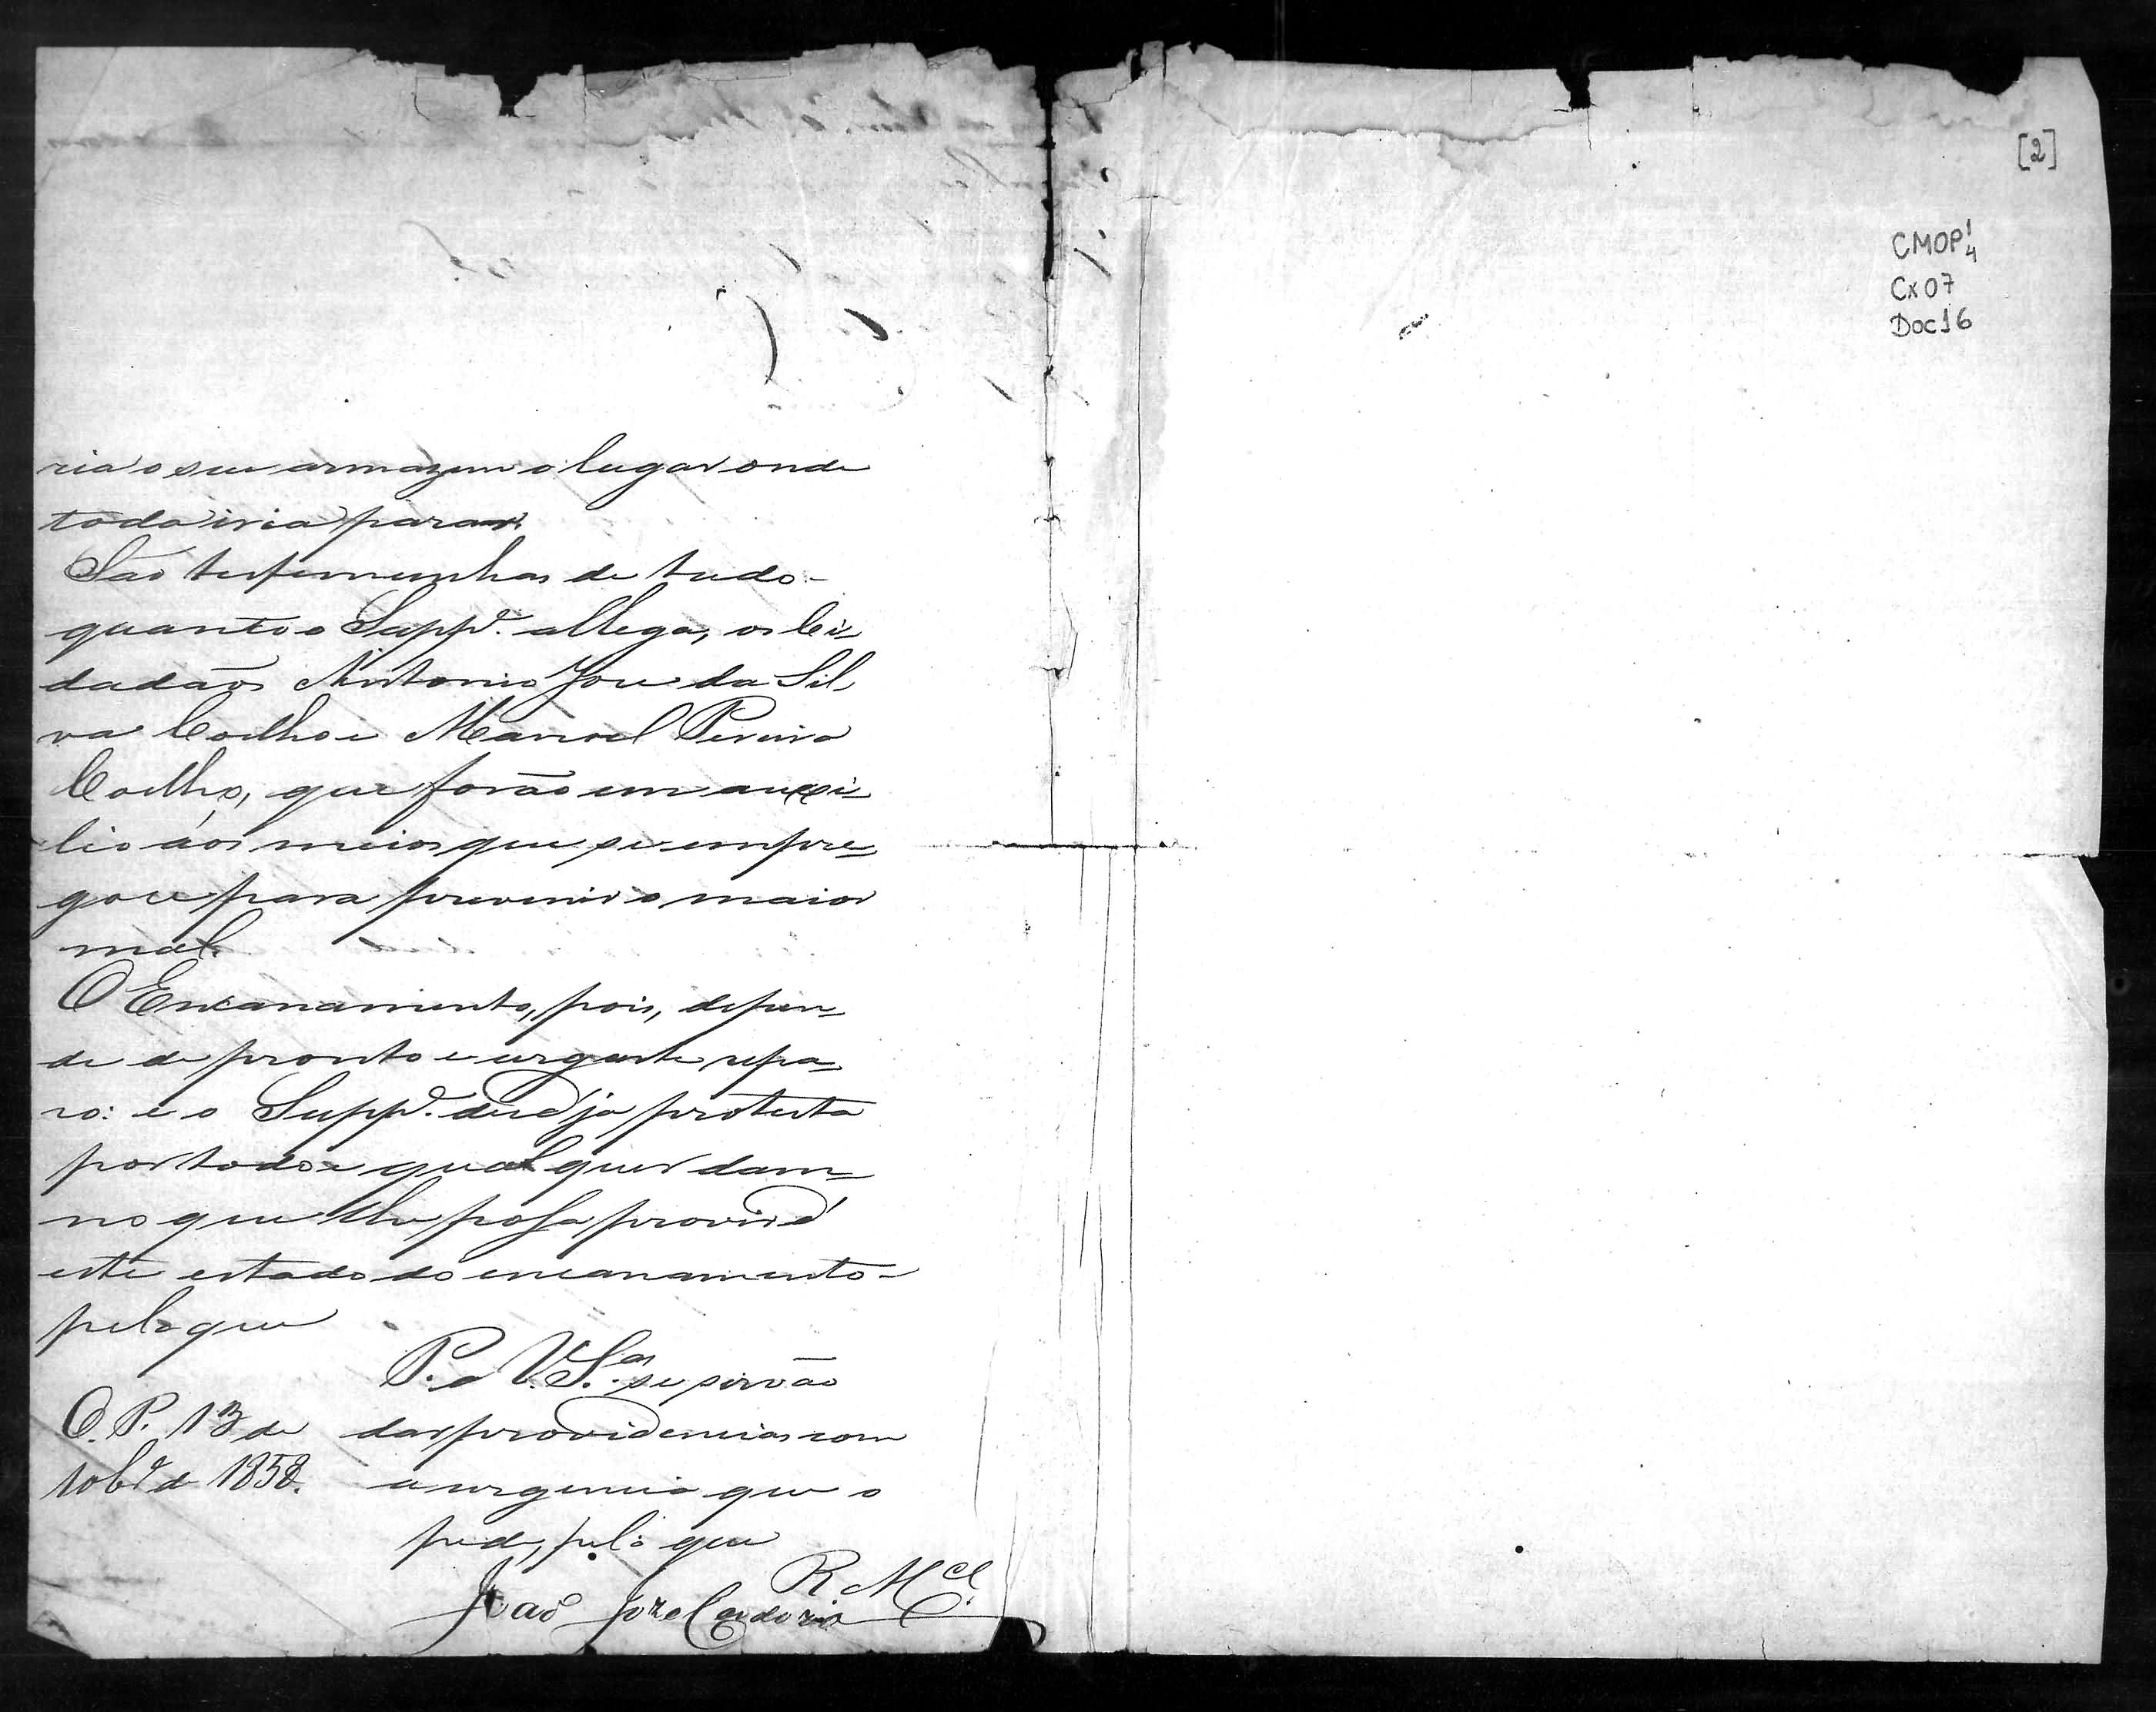 ria o seu armazem o lugar onde
toda iria parar.
São testemunhas de tudo
quanto o Supp.e allega, os Ci-
dadãos Antonio Jose da Sil-
va Coelho e Manoel Pereira
Coelho, que forão em auxi-
lio aos meios que se empre-
gou para prevenir o maior
mal.
O Encanamento, pois, depen-
de de pronto e urgente repa-
ro: e o Supp.e desde já protesta
por todo e qual quer dam-
no que lhe possa provir d'
este estado do encanamento
pelo que
P. a V. S.as se sirvão
dar providencias com
a urgencia que o
pede, pelo que
R. M.ce
O. P. 13 de
10br.o de 1858.
João Joze
[2]
CMOP 1/4
Cx 07
Doc 16